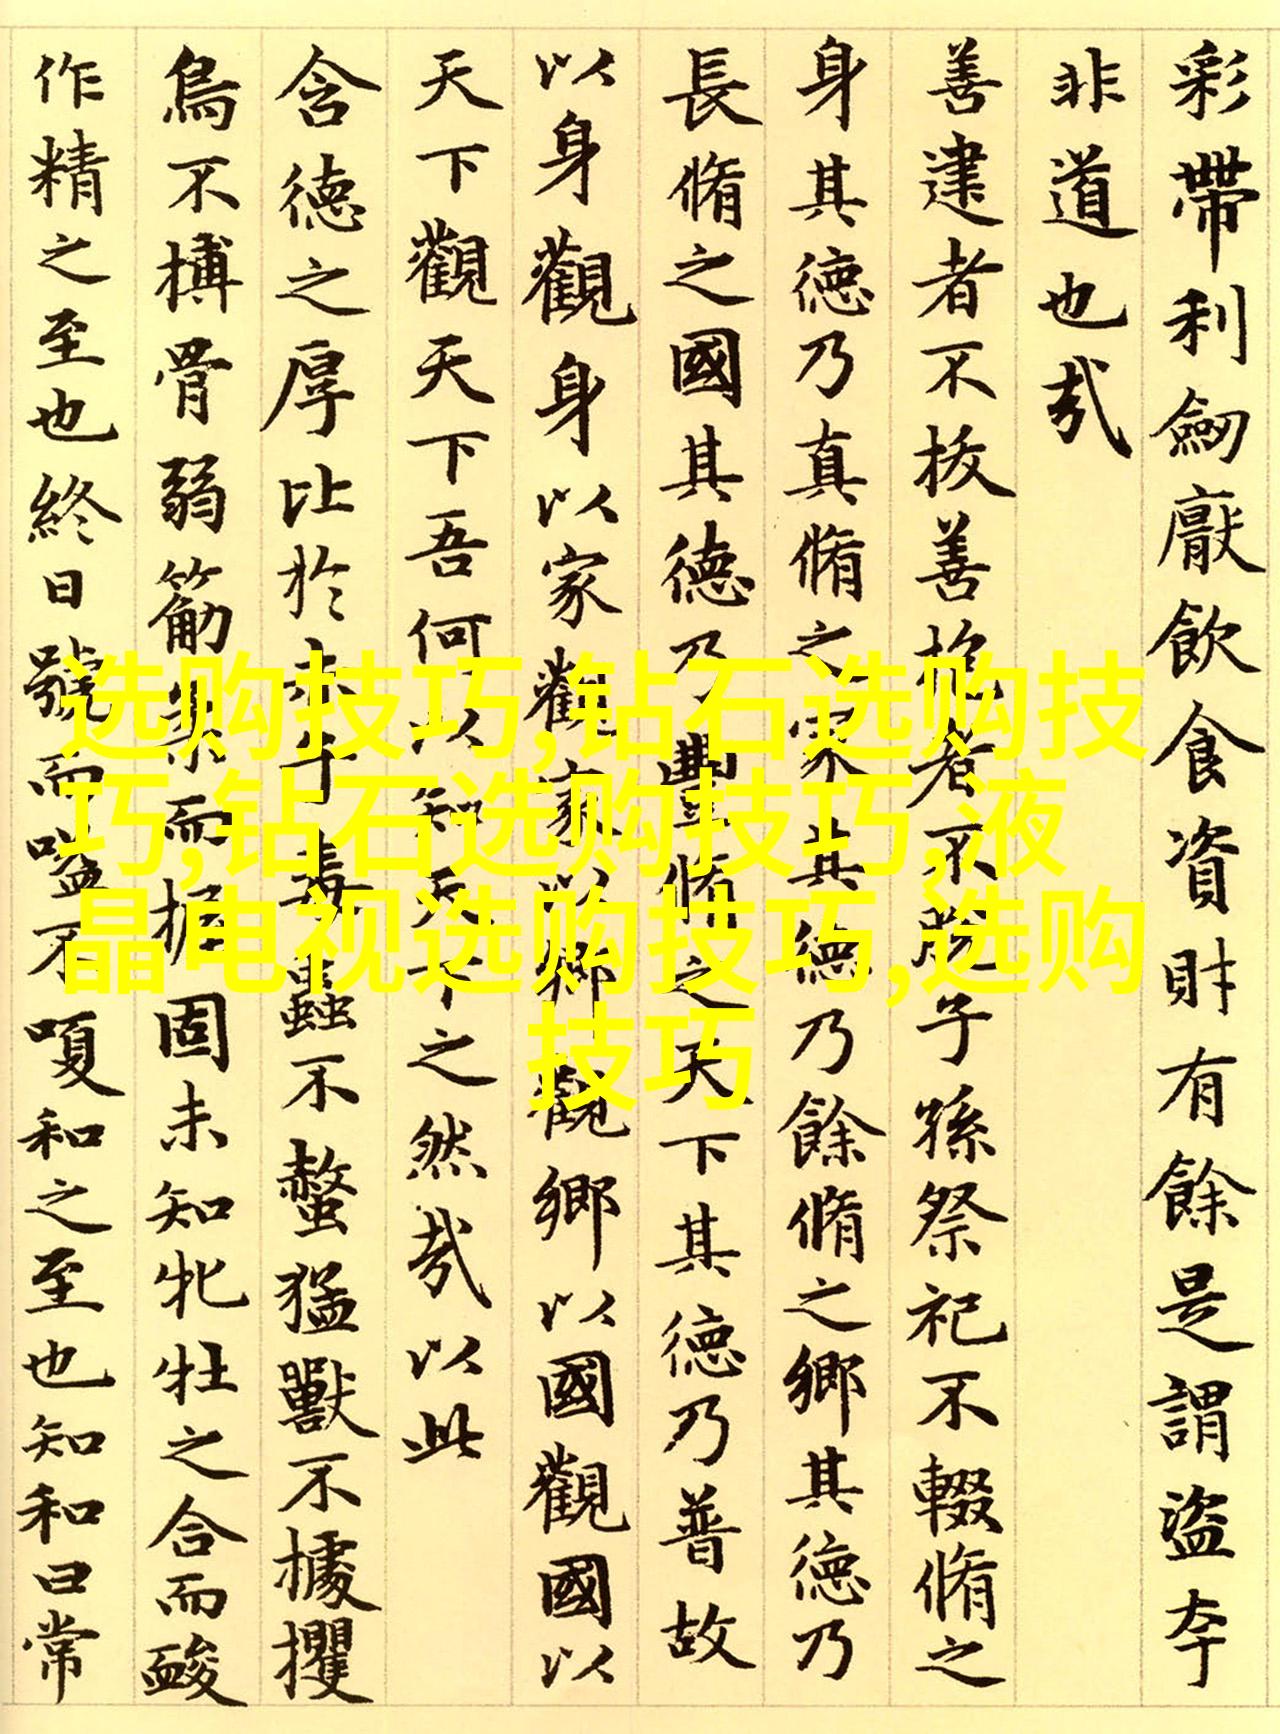 彩帶利劒厭飲食資財有餘是謂盜夸
非道也哉
善建者不拔善抱者不脫子孫祭祀不輟脩之
身其德乃真脩之家其德乃餘脩之鄉其德乃
長脩之國其德乃豐脩之天下其德乃普故
以身觀身以家觀家以鄉觀鄉以國觀國以
天下觀天下吾何以知天下之然哉以此
含德之厚比於赤子毒蟲不螫猛獸不據攫
鳥不搏骨弱筋柔而握固未知牝牡之合而酸
作精之至也終日號而嗌不嗄和之至也知和曰常
选购技巧,钻石选购技
巧,钻石选购技巧,液
晶电视选购技巧,选购
技巧